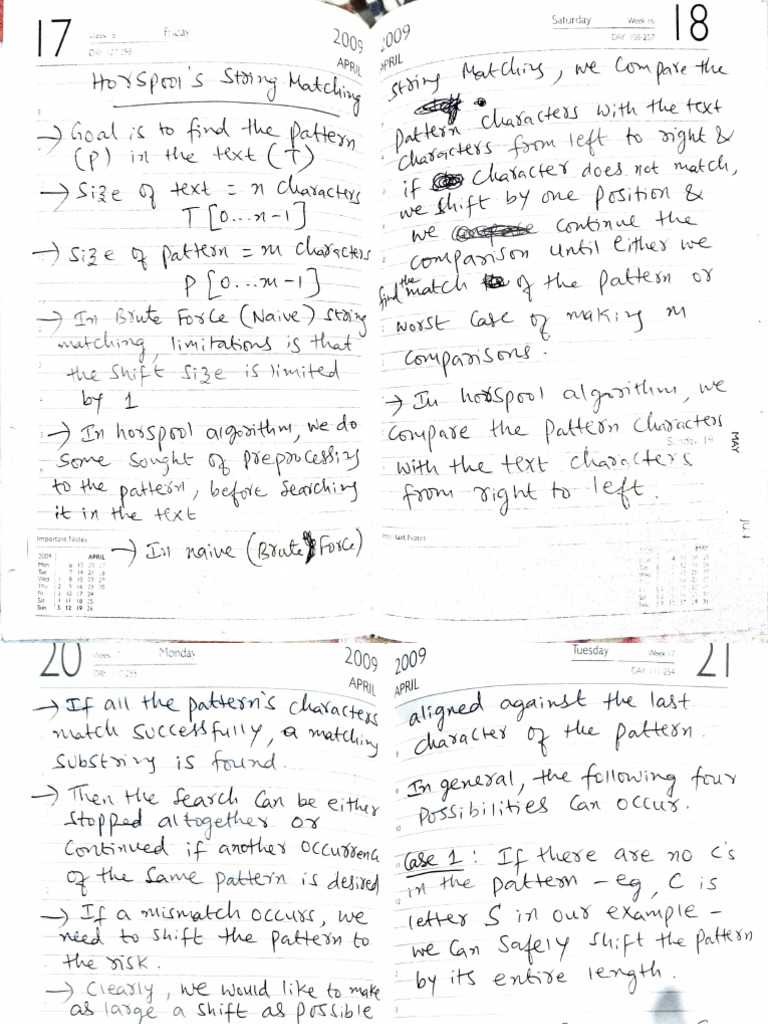 17
Friday
2009
APRIL
Horspool's String Matching
→ Goal is to find the pattern
(P) in the text (T)
→ Size of text = n characters
T [0...n-1]
→ Size of pattern = m characters
P [0...m-1]
→ In Brute Force (Naive) String
matching, limitations is that
the shift size is limited
by 1
→ In horspool algorithm, we do
some sought of preprocessing
to the pattern, before searching
it in the text
→ In naive (Brute Force)
Important Notes
2009 APRIL
Mon 6 13 20 27
Tue 7 14 21 28
Wed 1 8 15 22 29
Thu 2 9 16 23 30
Fri 3 10 17 24
Sat 4 11 18 25
Sun 5 12 19 26
Saturday
Week 16
18
2009
DAY 108-257
APRIL
String Matching, we compare the
pattern characters with the text
characters from left to right &
if character does not match,
we shift by one position &
we continue the
comparison until either we
find the match of the pattern or
worst case of making m
comparisons.
→ In horspool algorithm, we
compare the pattern characters
with the text characters
from right to left.
MAY
20
Monday
2009
APRIL
→ If all the pattern's characters
match successfully, a matching
substring is found.
→ Then the search can be either
stopped altogether or
continued if another occurrence
of the same pattern is desired
→ If a mismatch occurs, we
need to shift the pattern to
the risk.
→ Clearly, we would like to make
as large a shift as possible
Tuesday
Week 17
21
2009
APRIL
aligned against the last
character of the pattern.
In general, the following four
possibilities can occur.
Case 1 : If there are no c's
in the pattern - eg, C is
letter S in our example -
we can safely shift the pattern
by its entire length.